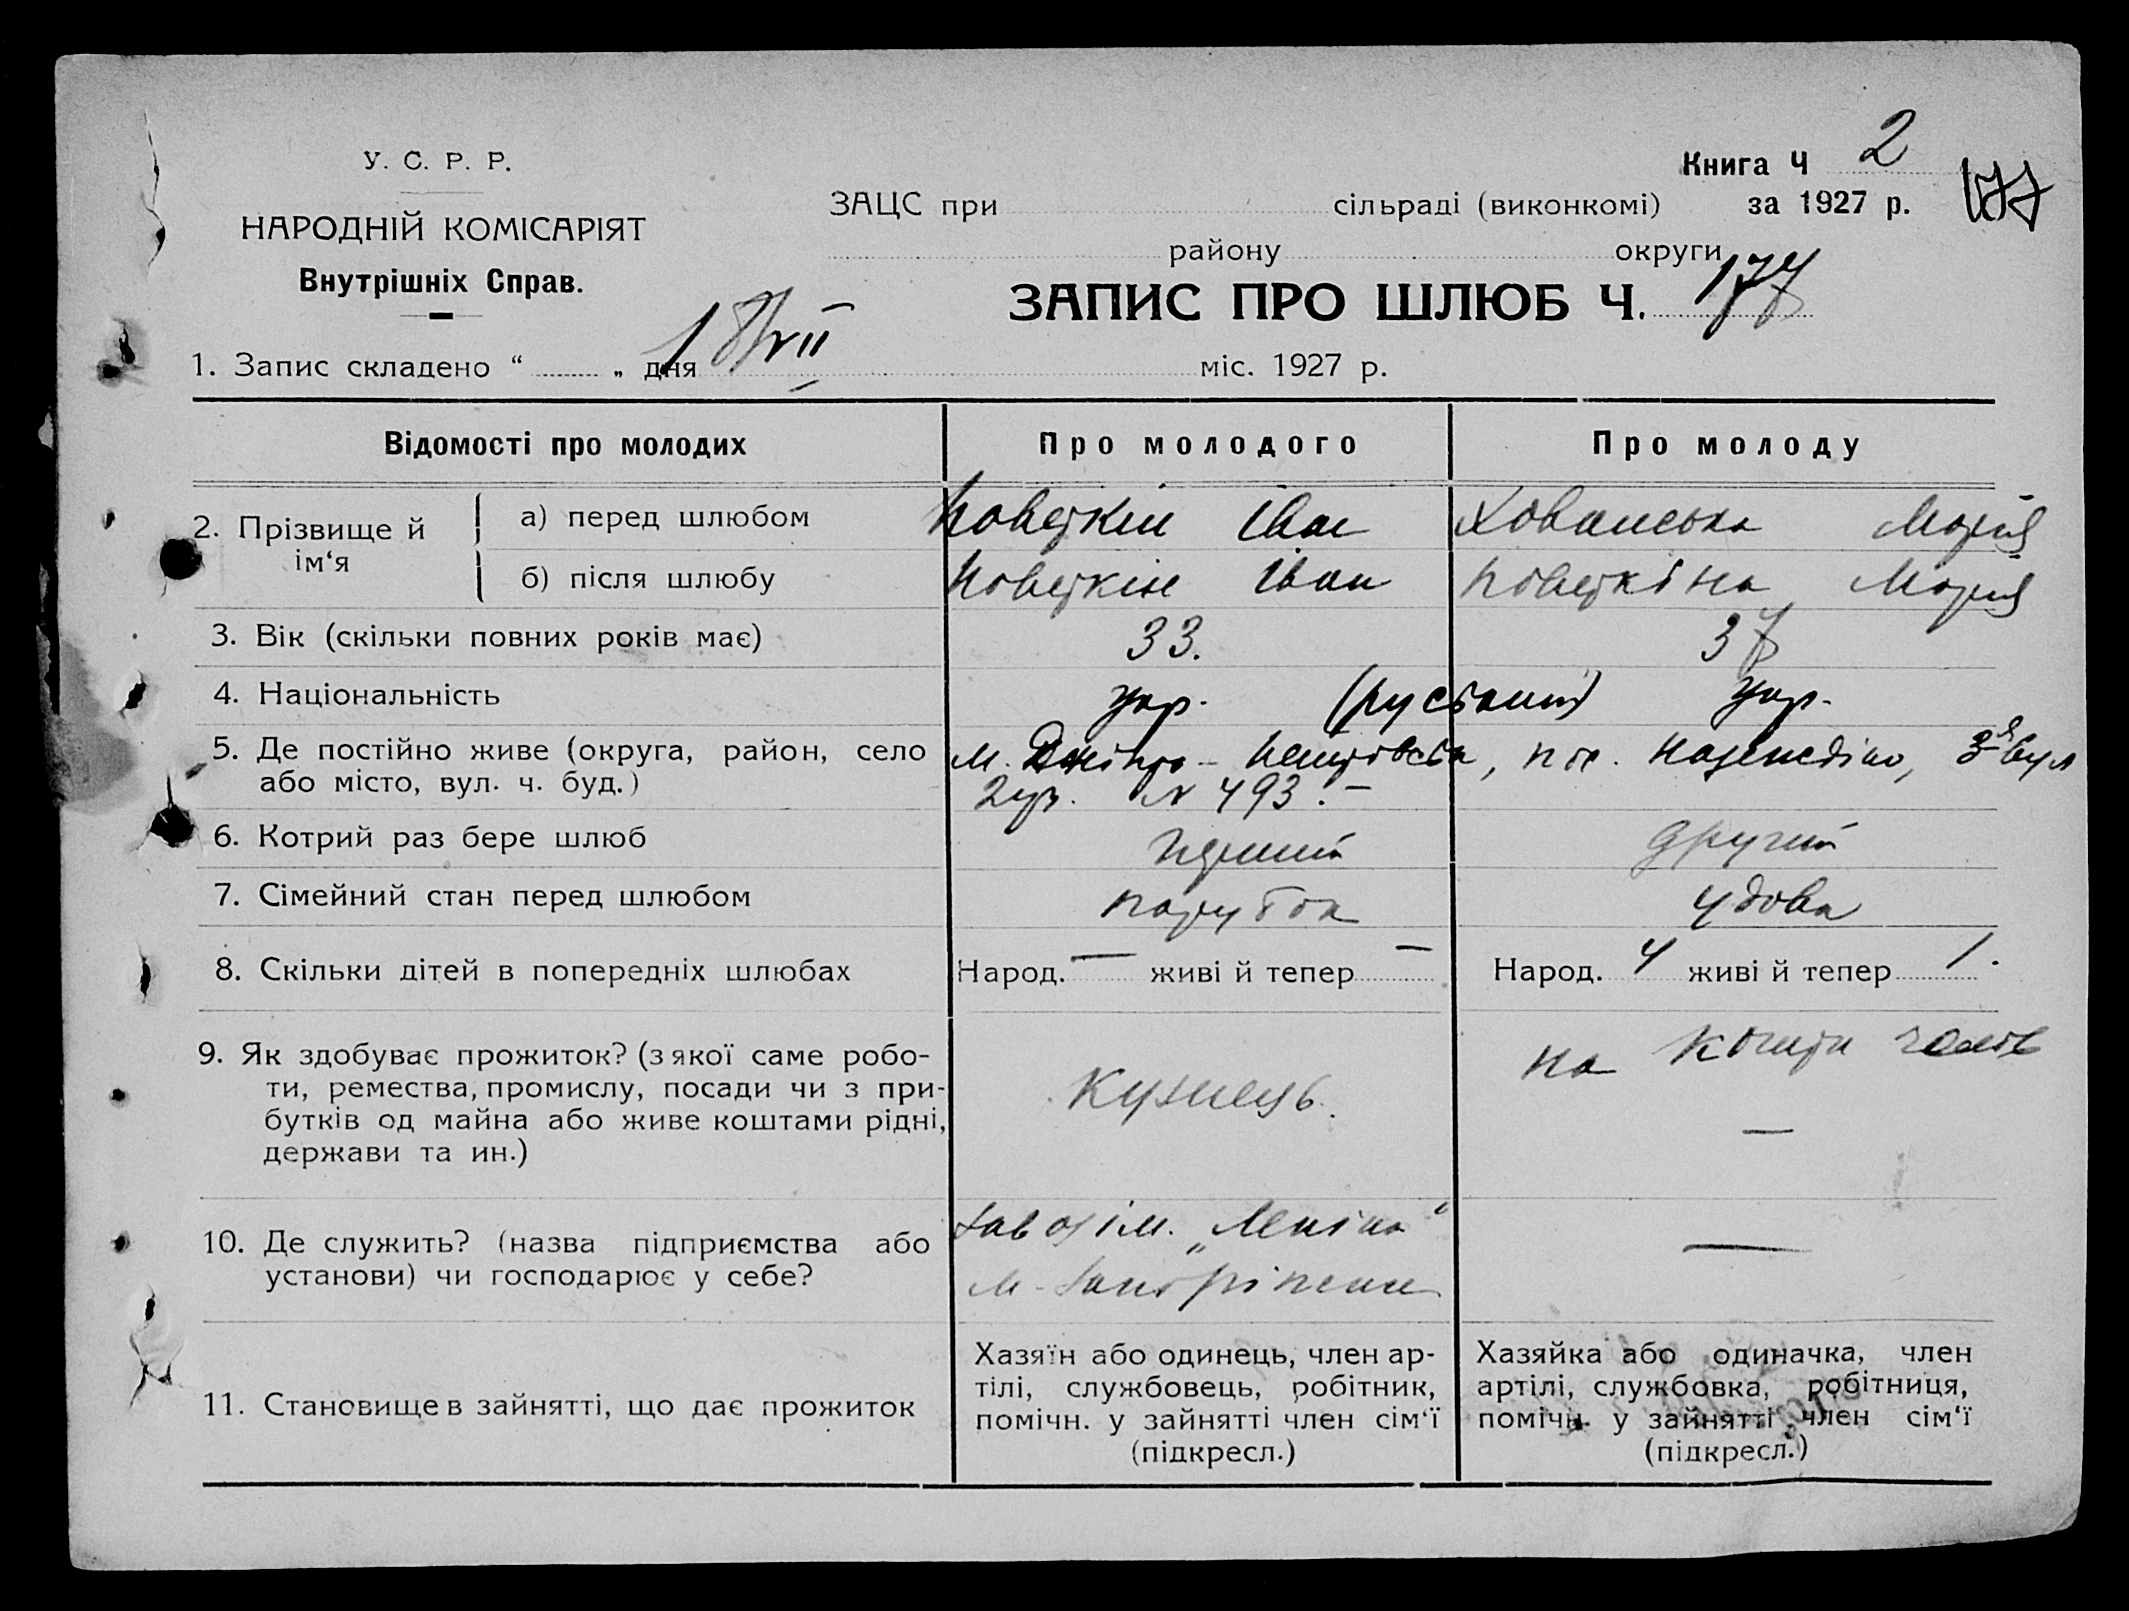 У. С. Р. Р.
НАРОДНІЙ КОМІСАРІЯТ
Внутрішніх Справ.
Книга Ч 2
ЗАЦС при сільраді (виконкомі) за 1927 р. 177
району округи
ЗАПИС ПРО ШЛЮБ Ч. 177
1. Запис складено “ „ дня 18/VII міс. 1927 р.
Відомості про молодих Про молодого Про молоду
2. Прізвище й ім‘я
а) перед шлюбом Поветкін Іван Хованська Марія
б) після шлюбу Поветкін Іван Поветкіна Марія
3. Вік (скільки повних років має) 33. 37
4. Національність укр. (руський) укр.
5. Де постійно живе (округа, район, село м. Дніпро-Петровськ, пос. 3-я вул
або місто, вул. ч. буд.) № 493.-
6. Котрий раз бере шлюб перший другий
7. Сімейний стан перед шлюбом парубок удова
8. Скільки дітей в попередніх шлюбах Народ. — живі й тепер — Народ. 4 живі й тепер 1.
9. Як здобуває прожиток? (з якої саме робо-
ти, ремества, промислу, посади чи з при-
бутків од майна або живе коштами рідні,
держави та ин.)
Кузнець.
на кошти чолов
—
10. Де служить? (назва підприємства або
установи) чи господарює у себе?
Завод ім. „Леніна“
—
11. Становище в зайнятті, що дає прожиток
Хазяїн або одинець, член ар-
тілі, службовець, робітник,
помічн. у зайнятті член сім‘ї
(підкресл.)
Хазяйка або одиначка, член
артілі, службовка, робітниця,
помічн. у зайнятті член сім‘ї
(підкресл.)